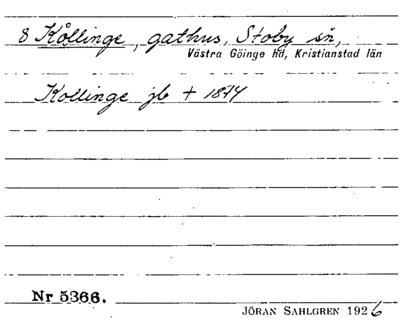 8 Kollinge, gathus, Stoby sn,
Västra Göinge hd, Kristianstad län
Kollinge jb + 1874
Nr 5366.
JÖRAN SAHLGREN 1926